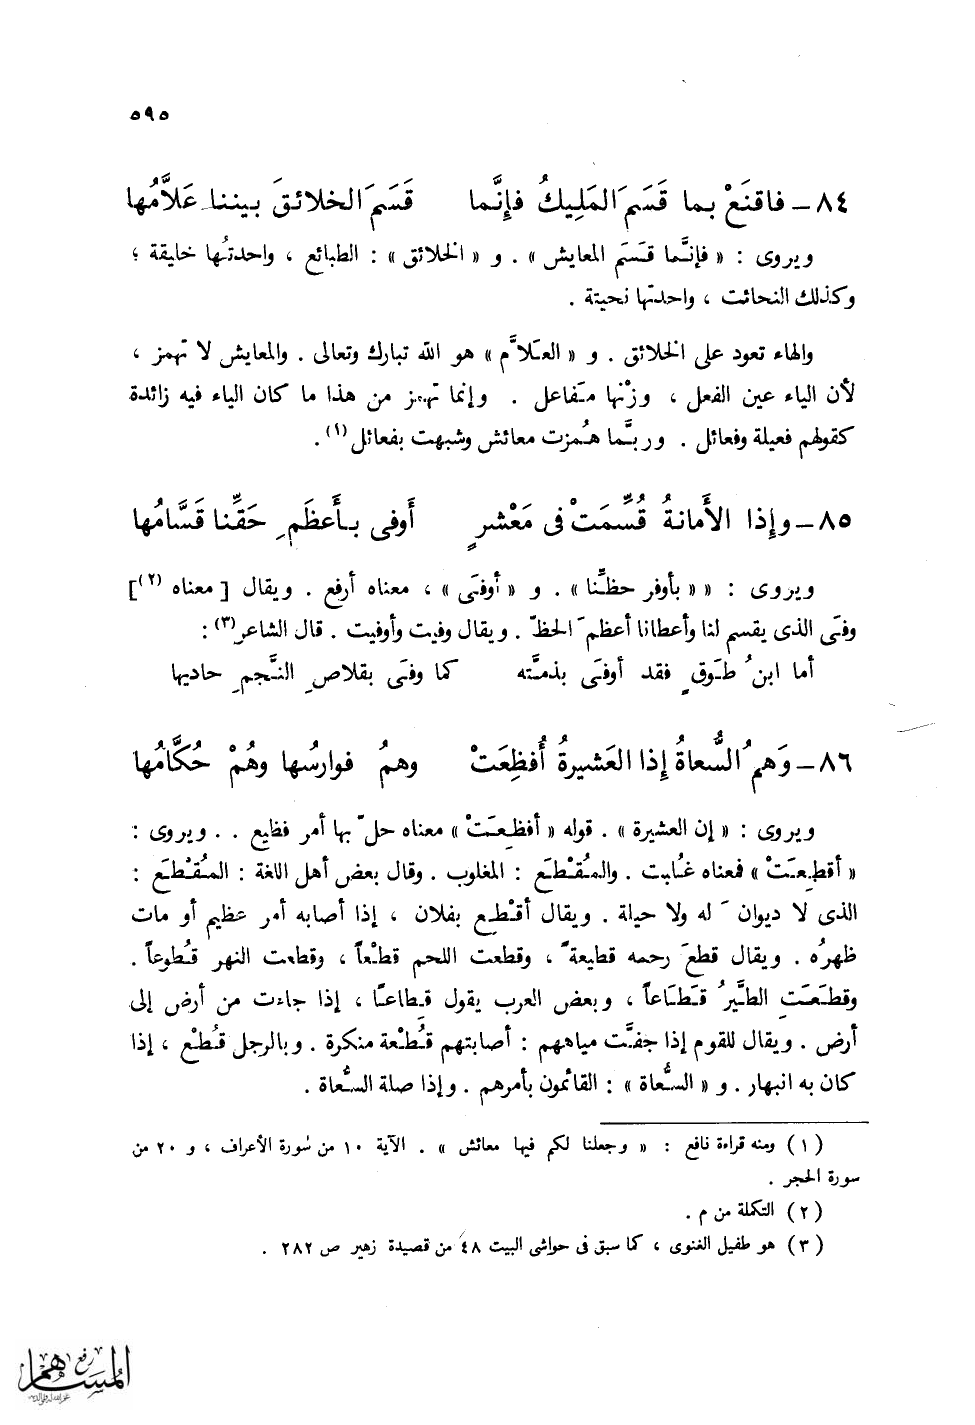 ٥٩٥
٨٤ – فاقنَعْ بما قَسَمَ المَلِيكُ فإِنَّما قَسَمَ الخلائقَ بيننا عَلاَّمُها
ويروى : « فإنَّما قَسَمَ المعايش » . و « الخلائق » : الطبائع ، واحدتُها خليقة ؛
وكذلك النحائت ، واحدتها نحيتة .
والهاء تعود على الخلائق . و « العَلاَّم » هو الله تبارك وتعالى . والمعايش لا تهمز ،
لأن الياء عين الفعل ، وزْنها مَفاعل . وإنما تهمز من هذا ما كان الياء فيه زائدة
كقولهم فعيلة وفعائل . وربَّما هُمزت معائش وشبهت بفعائل (١) .
٨٥ – وإذا الأَمانةُ قُسِّمَتْ فى مَعْشرٍ أَوفى بأَعظَمِ حَقِّنا قَسَّامُها
ويروى : « « بأوفر حظِّنا » . و « أوفَى » ، معناه أرفع . ويقال [ معناه (٢) ]
وفَى الذى يقسم لنا وأعطانا أعظمَ الحظّ . ويقال وفيت وأوفيت . قال الشاعر (٣) :
أما ابنُ طَوقٍ فقد أوفَى بذمَّته كما وفَى بقلاصِ النَّجمِ حاديها
٨٦ – وَهمُ السُّعاةُ إِذا العَشيرةُ أُفظِعَتْ وهمُ فوارسُها وهُمْ حُكَّامُها
ويروى : « إن العشيرة » . قوله « أفظِعَتْ » معناه حلّ بها أمر فظيع . . ويروى :
« أقطِعَتْ » فمعناه غُلبت . والمُقْطَع : المغلوب . وقال بعض أهل اللغة : المُقْطَع :
الذى لا ديوان له ولا حيلة . ويقال أقْطِع بفلان ، إذا أصابه أمر عظيم أو مات
ظهرُه . ويقال قطعَ رحمه قطيعةً ، وقطعت اللحم قطْعاً ، وقطعت النهر قُطوعاً .
وقطَعَتِ الطَّيرُ قَطَاعاً ، وبعض العرب يقول قِطاعًا ، إذا جاءت من أرض إلى
أرض . ويقال للقوم إذا جفَّت مياههم : أصابتهم قُطْعة منكرة . وبالرجل قُطْع ، إذا
كان به انبهار . و « السُّعاة » : القائمون بأمرهم . وإذا صلة السُّعاة .
(١) ومنه قراءة نافع : « وجعلنا لكم فيها معائش » . الآية ١٠ من سُورة الأعراف ، و ٢٠ من
سورة الحجر .
(٢) التكملة من م .
(٣) هو طفيل الغنوى ، كما سبق فى حواشى البيت ٤٨ من قصيدة زهير ص ٢٨٢ .